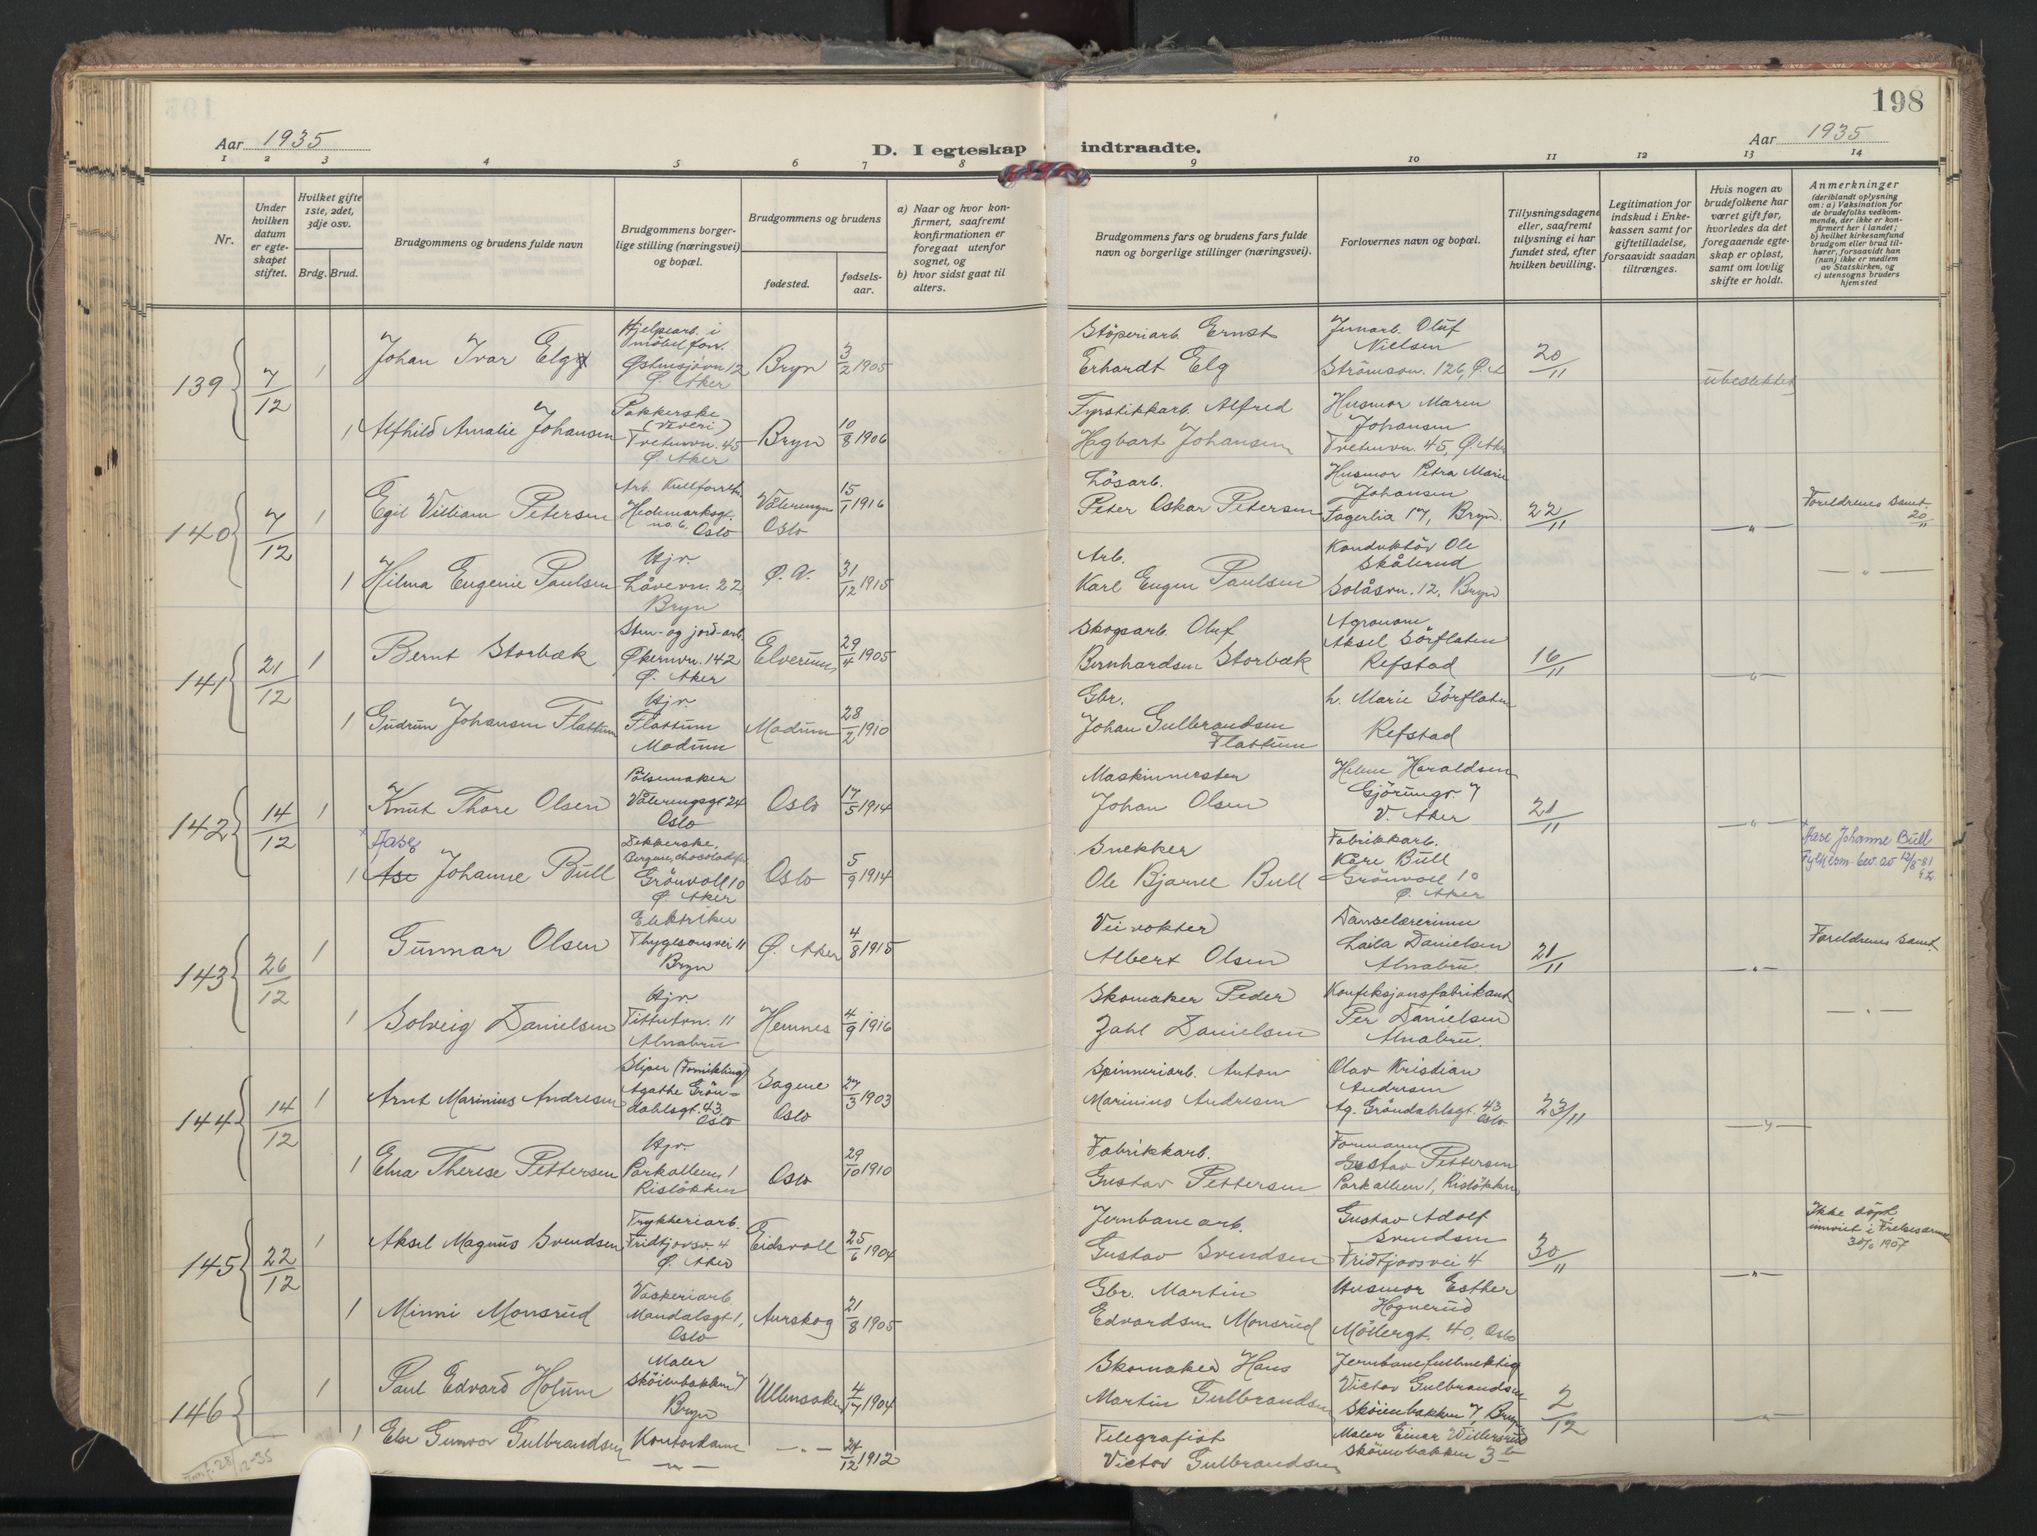 198
Aar 1935
D. I egteskap indtraadte.
Aar 1935
1 2 3 4 5 6 7 8 9 10 11 12 13 14
Nr.
Under hvilken datum er egteskapet stiftet.
Hvilket gifte 1ste, 2det, 3dje osv.
Brdg. Brud.
Brudgommens og brudens fulde navn
Brudgommens borgerlige stilling (næringsvei) og bopæl.
Brudgommens og brudens
fødested.
fødselsaar.
a) Naar og hvor konfirmert, saafremt konfirmationen er foregaat utenfor sognet, og
b) hvor sidst gaat til alters.
Brudgommens fars og brudens fars fulde navn og borgerlige stillinger (næringsvei).
Forlovernes navn og bopæl.
Tillysningsdagene eller, saafremt tillysning ei har fundet sted, efter hvilken bevilling.
Legitimation for indskud i Enkekassen samt for giftetilladelse, forsaavidt saadan tiltrænges.
Hvis nogen av brudefolkene har været gift før, hvorledes da det foregaaende egteskap er opløst, samt om lovlig skifte er holdt.
Anmerkninger (deriblandt oplysning om: a) Vaksination for de brudefolks vedkommende, der ikke er konfirmert her i landet; b) hvilket kirkesamfund brudgom eller brud tilhører, forsaavidt han (hun) ikke er medlem av Statskirken, og c) utensogns bruders hjemsted
139 7/12 1 Johan Ivar Elg Hjelpearb. i møbelforr. Østensjøvn 12 Ø. Aker Bryn 3/2 1905 Støperiarb. Ernst Erhardt Elg Jernarb. Oluf Nielsen Strömsvn. 126, Ø.A 20/11 ubeslektet
1 Alfhild Amalie Johansen Pakkerske (Veveri) Tvetenvn. 45 Ø. Aker Bryn 10/8 1906 Fyrstikkarb. Alfred Hagbart Johansen Husmor Maren Johansen Tvetenvn. 45, Ø. Aker
140 7/12 1 Egil Villiam Petersen Arb. Kullforretn. Hedemarksgt. no. 6. Oslo Vålerengen Oslo 15/1 1916 Løsarb. Peter Oskar Petersen Husmor Petra Marie Johansen Fagerlia 17, Bryn. 22/11 — " — Foreldrenes samt. 20/11
1 Hilma Eugenie Paulsen Hjv. Låvevn. 22 Bryn Ø. A. 31/12 1915 Arb. Karl Eugen Paulsen Konduktör Ole Skålerud Solåsvn. 12, Bryn — " —
141 21/12 1 Bernt Storbæk Sten- og jord-arb. Økernvn. 142 Ø. Aker Elverum 29/4 1905 Skogsarb. Oluf Bernhardsen Storbæk Agronom Aksel Sörflaten Refstad 16/11 — " —
1 Gudrun Johansen Flattum Hjv. Flattum Modum Modum 28/2 1910 Gbr. Johan Gulbrandsen Flattum h. Marie Sörflaten Refstad
142 14/12 1 Knut Thore Olsen Pølsemaker Vålerengsgt 24 Oslo Oslo 17/5 1914 Maskinmester Johan Olsen Helene Haraldsen Gjörungv. 7 V. Aker 21/11 — " —
× Aase
1 Ase Johanne Bull Dekkerske, Bergene chocoladefa. Grönvoll 10 Ø. Aker Oslo 5/9 1914 Snekker Ole Bjarne Bull Fabrikkarb. Kåre Bull Grönvoll 10 Ø. Aker × Aase Johanne Bull Fylk. com. bev. av 12/5 81
143 26/12 1 Gunnar Olsen Elektriker Thygesonsvei 11 Bryn Ø. Aker 4/8 1915 Veivokter Albert Olsen Danselærerinne Laila Danielsen Alnabru 21/11 — " — Foreldrenes samt.
1 Solveig Danielsen Hjv. Tittutvn. 11 Alnabru Hemnes 4/9 1916 Skomaker Peder Zahl Danielsen Konfeksjonsfabrikant Per Danielsen Alnabru. — " —
144 14/12 1 Arnt Marinius Andresen Sliper (Fornikling) Agathe Gröndahlsgt. 43 Oslo Sagene Oslo 27/3 1903 Spinneriarb. Anton Marinius Andresen Olav Kristian Andresen Ag. Gröndahlsgt. 43 Oslo 23/11 — " —
1 Elna Therese Pettersen Hjv. Parkalleen 1 Risløkken Oslo 29/10 1910 Fabrikkarb. Gustav Pettersen Formann Gustav Pettersen Parkalleen 1, Risløkken
145 22/12 1 Aksel Magnus Svendsen Trykkeriarb. Fridtjovsv. 4 Ø. Aker Eidsvoll 25/6 1904 Jernbanearb. Gustav Svendsen Gustav Adolf Svendsen Fridtjovsvei 4 30/11 — " — Ikke døpt, innviet i Frelsesarmeen 1907
1 Minni Monsrud Vaskeriarb. Mandalsgt 1, Oslo Aurskog 21/8 1905 Gbr. Martin Edvardsen Monsrud Husmor Esther Hognerud Møllergt. 40, Oslo
146 1 Paul Edvard Holum Maler Skøienbakken 7 Bryn Ullensaker 4/7 1904 Skomaker Hans Martin Gulbrandsen Jernbanefullmektig Victor Gulbrandsen Skøienbakken 7, Bryn 2/12 — " —
1 Else Gunvor Gulbrandsen Kontordame — " — — " — 24/12 1912 Telegrafist Victor Gulbrandsen Maler Einar Willersrud Skøienbakken 3b
28/12-35